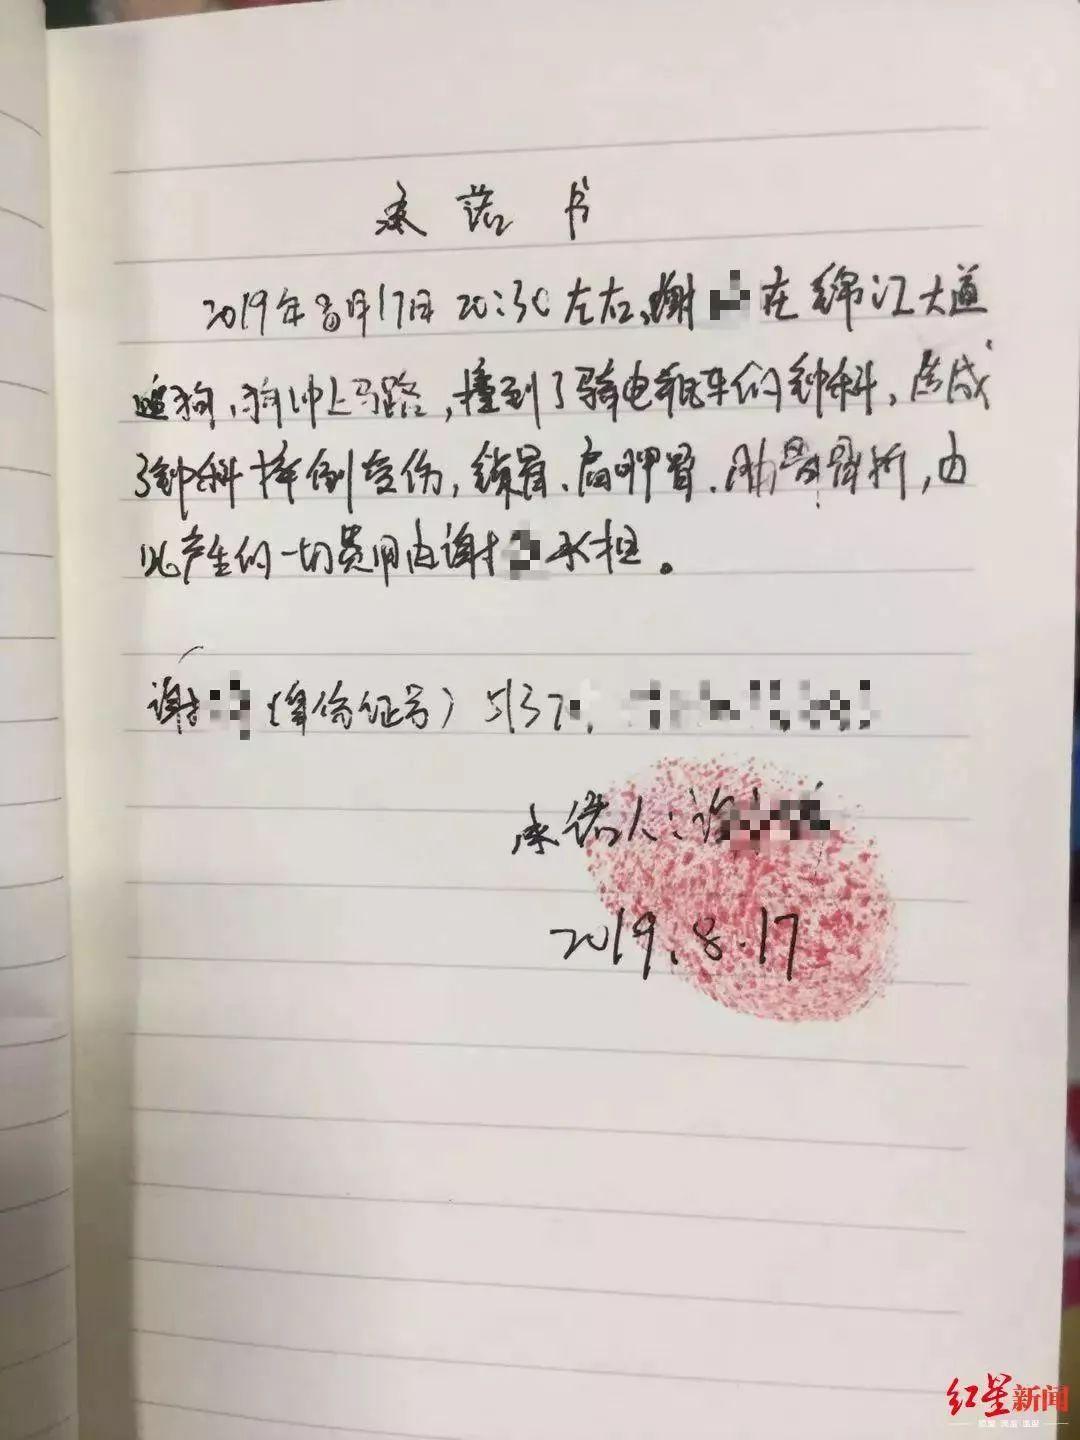 承诺书
2019年8月17日 20:30左右，谢在锦江大道
遛狗，狗冲上马路，撞到了骑电瓶车的钟科，造成
了钟科摔倒受伤，锁骨、肩胛骨、肋骨骨折，由
此产生的一切费用由谢承担。
谢（身份证号）5137
承诺人：谢
2019.8.17
红星新闻